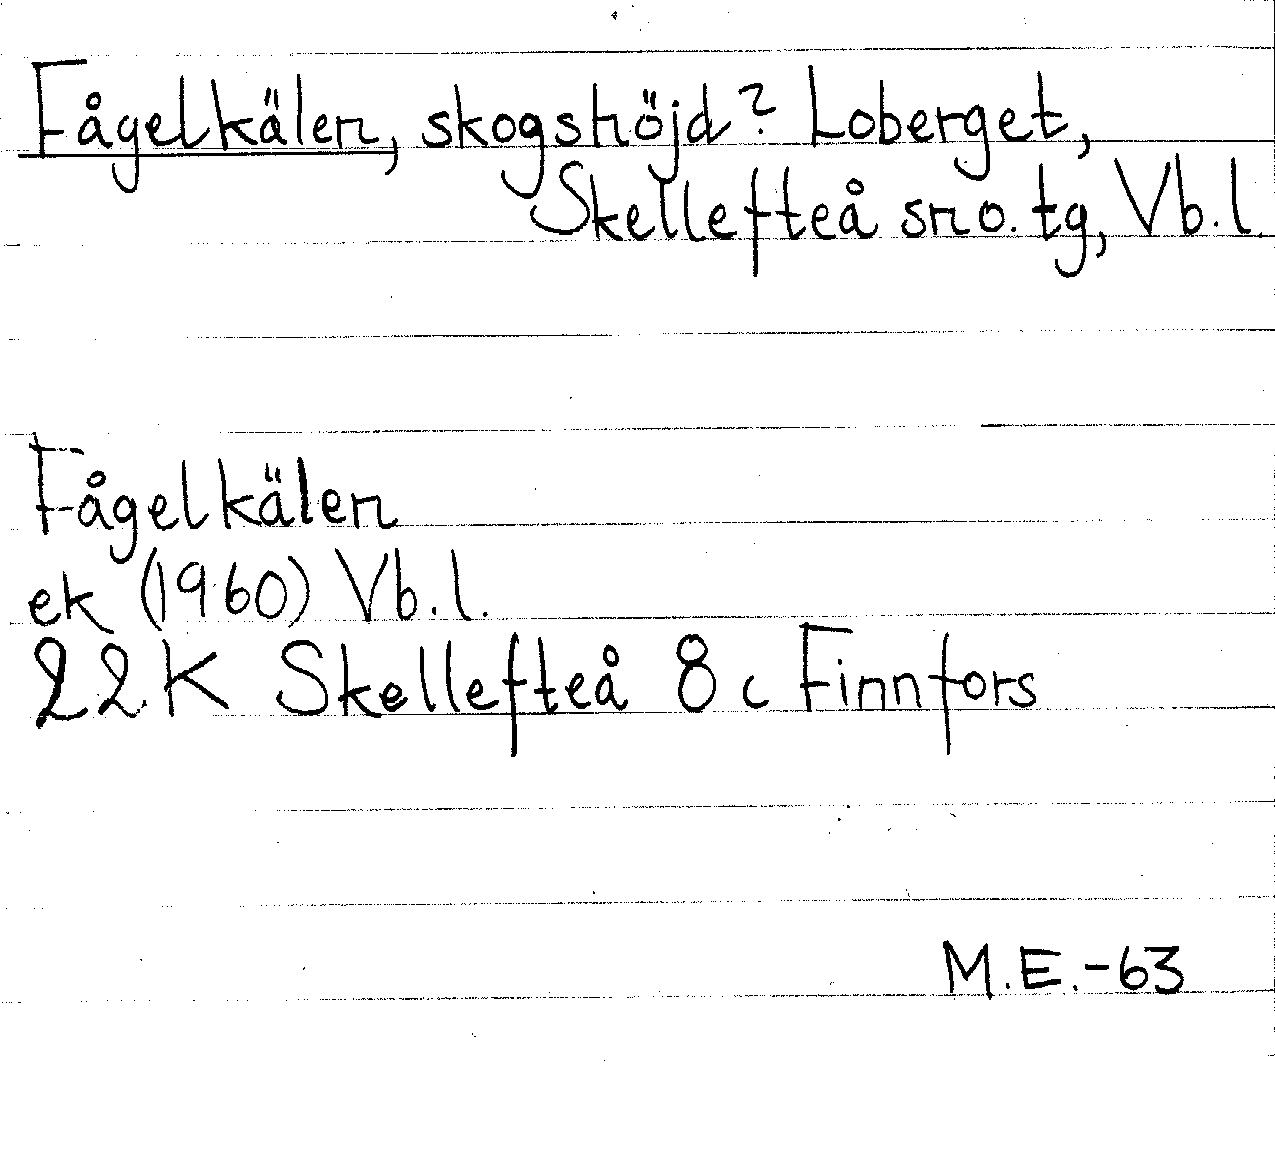 Fågelkälen, skogshöjd? Loberget,
Skellefteå sn o. tg, Vb.l.
Fågelkälen
ek (1960) Vb.l.
22K Skellefteå 8c Finnfors
M.E.-63